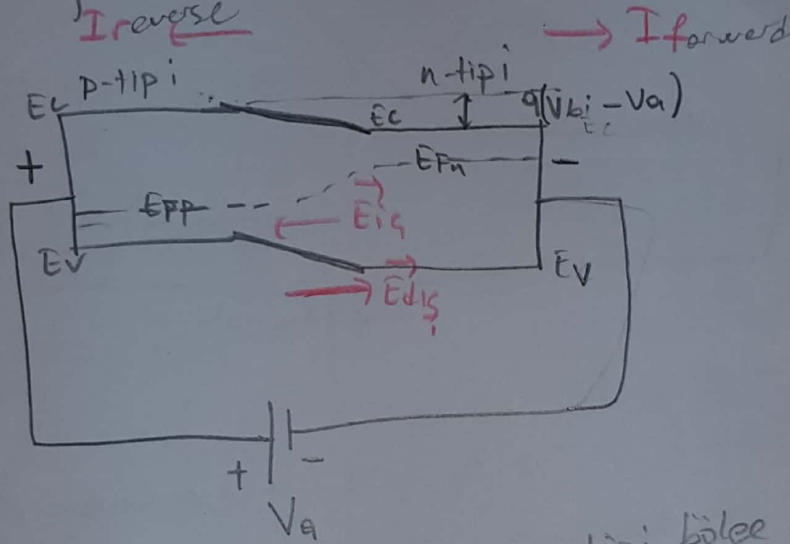 Ireverse
Iforward
p-tipi
n-tipi
Ec
Ec
q(Vbi-Va)
Ec
+
EFn
-
EFP
Eiç
Ev
Ev
Edış
+
-
Va
bölge